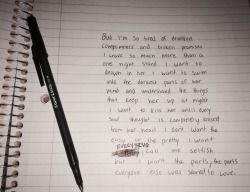 But I'm so tired of drunken
compliments and broken promises
I crave so much more than a
one night stand I want to
drown in her I want to swim
into the darkest parts of her
mind and understand the things
that keep her up at night
I want to kiss her until every
sad thought is completely erased
from her head I don't want the
easy or the pretty I want
EVERYTHING, call me selfish
but I want the parts, the parts
everyone else was scared to love.